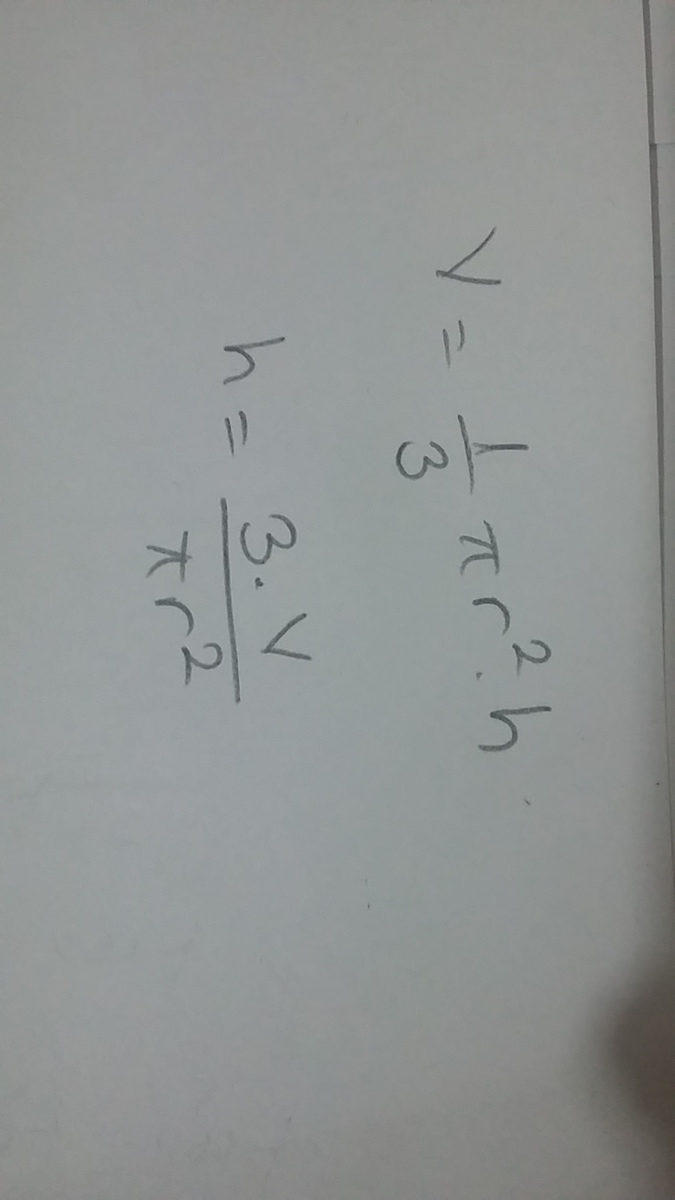 V = 1/3 π r². h
h = 3.V / π r²